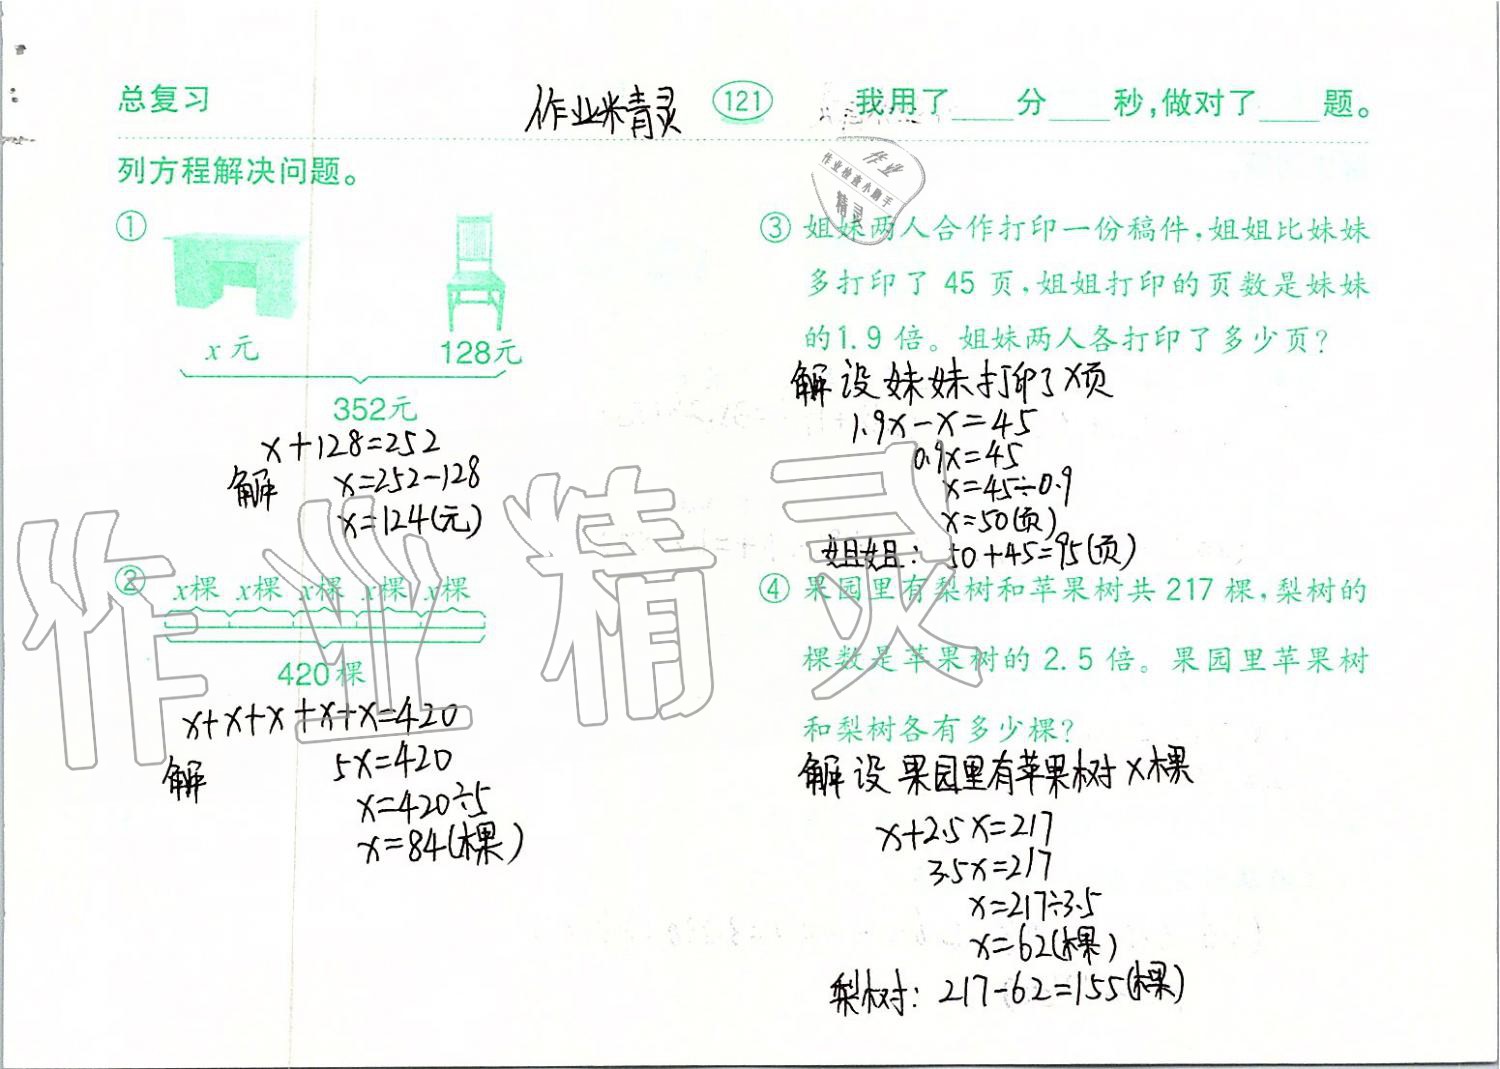 总复习
作业米青灵
121
我用了____分____秒,做对了____题。
列方程解决问题。
①
x元
128元
352元
x+128=252
解 x=252-128
x=124(元)
②
x棵 x棵 x棵 x棵 x棵
420棵
x+x+x+x+x=420
解 5x=420
x=420÷5
x=84(棵)
作业
作业检查小助手
精灵
③ 姐妹两人合作打印一份稿件,姐姐比妹妹
多打印了 45 页,姐姐打印的页数是妹妹
的1.9 倍。姐妹两人各打印了多少页?
解 设妹妹打印了x页
1.9x-x=45
0.9x=45
x=45÷0.9
x=50(页)
姐姐: 50+45=95(页)
④ 果园里有梨树和苹果树共 217 棵,梨树的
棵数是苹果树的 2.5 倍。果园里苹果树
和梨树各有多少棵?
解 设果园里有苹果树x棵
x+2.5x=217
3.5x=217
x=217÷3.5
x=62(棵)
梨树: 217-62=155(棵)
作业精灵